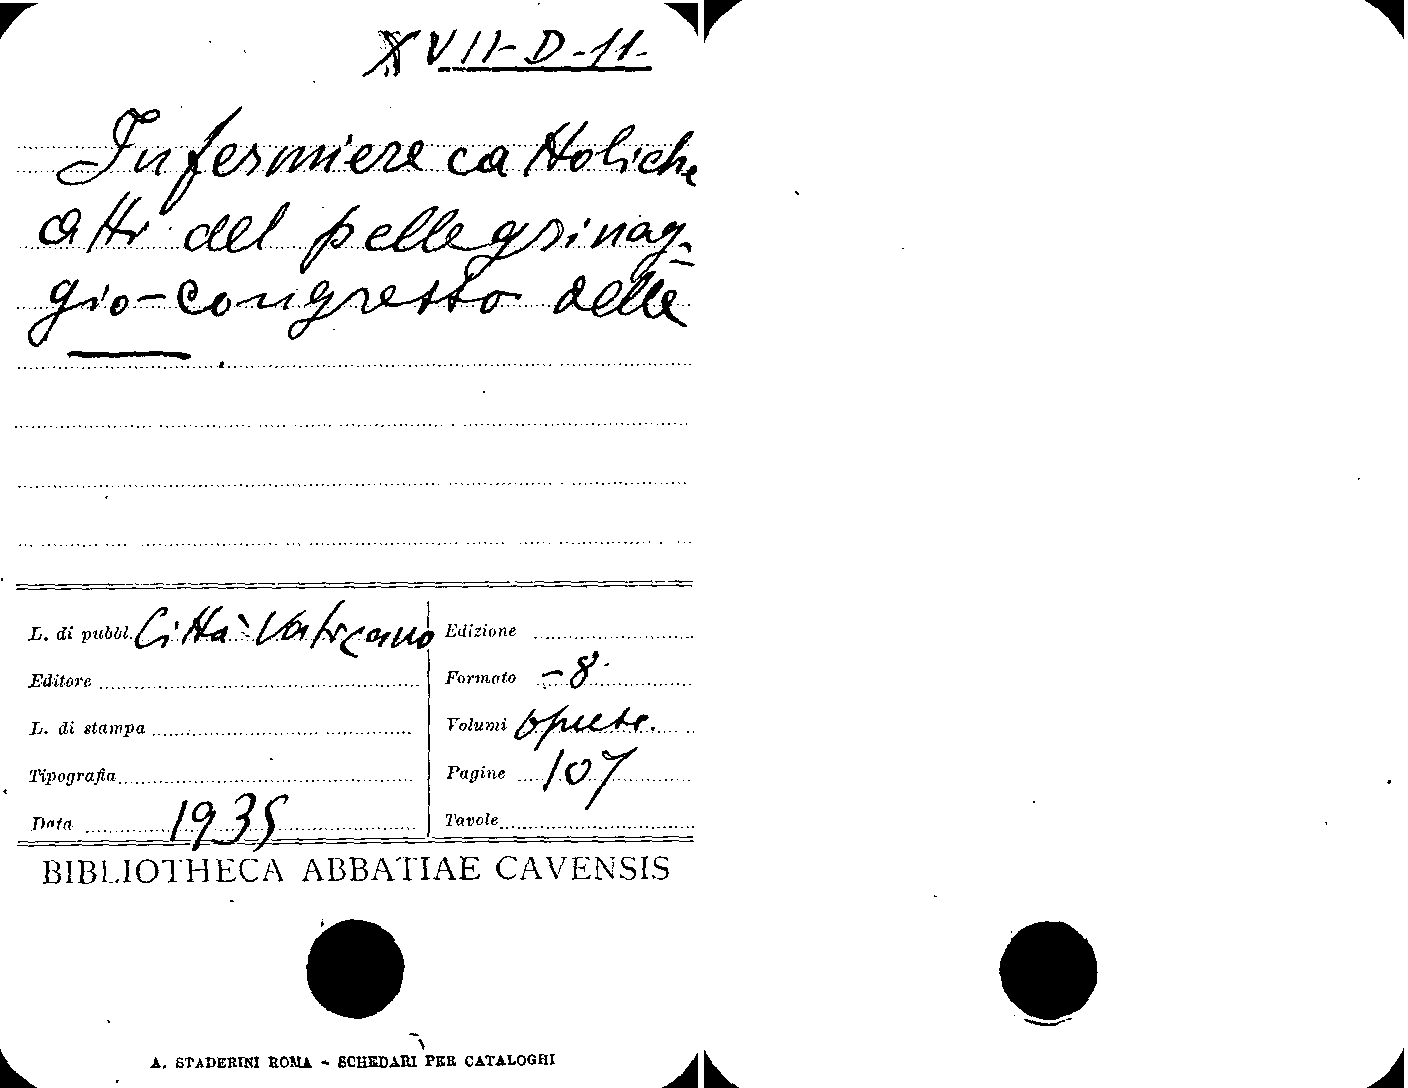 XVII-D-11-
Infermiere cattoliche
atti del pellegrinag-
gio-congresso delle
L. di pubbl. Città Vaticano
Edizione
Editore
Formato -8°
L. di stampa
Volumi opusc.
Tipografia
Pagine 107
Data 1935
Tavole
BIBLIOTHECA ABBATIAE CAVENSIS
A. STADERINI ROMA - SCHEDARI PER CATALOGHI